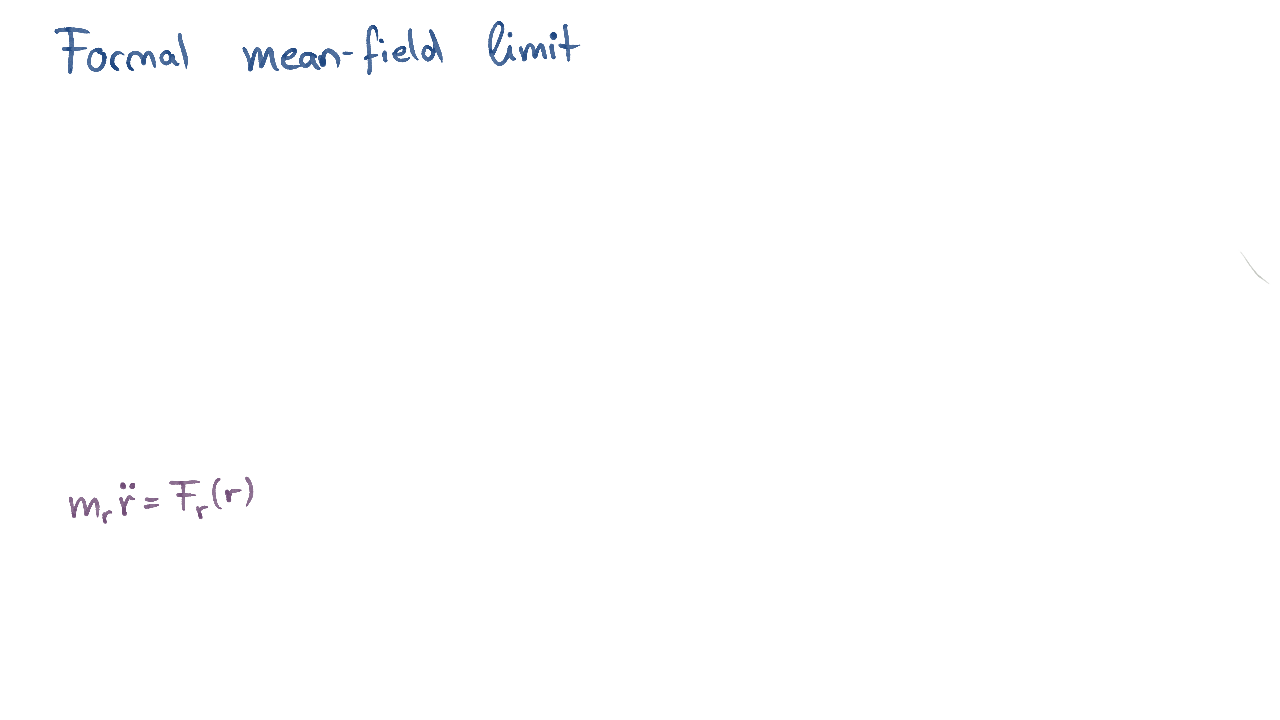 Formal mean-field limit
mᵣ r̈ = Fᵣ(r)